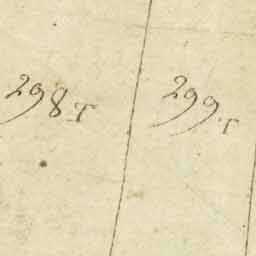 298.T
299.T